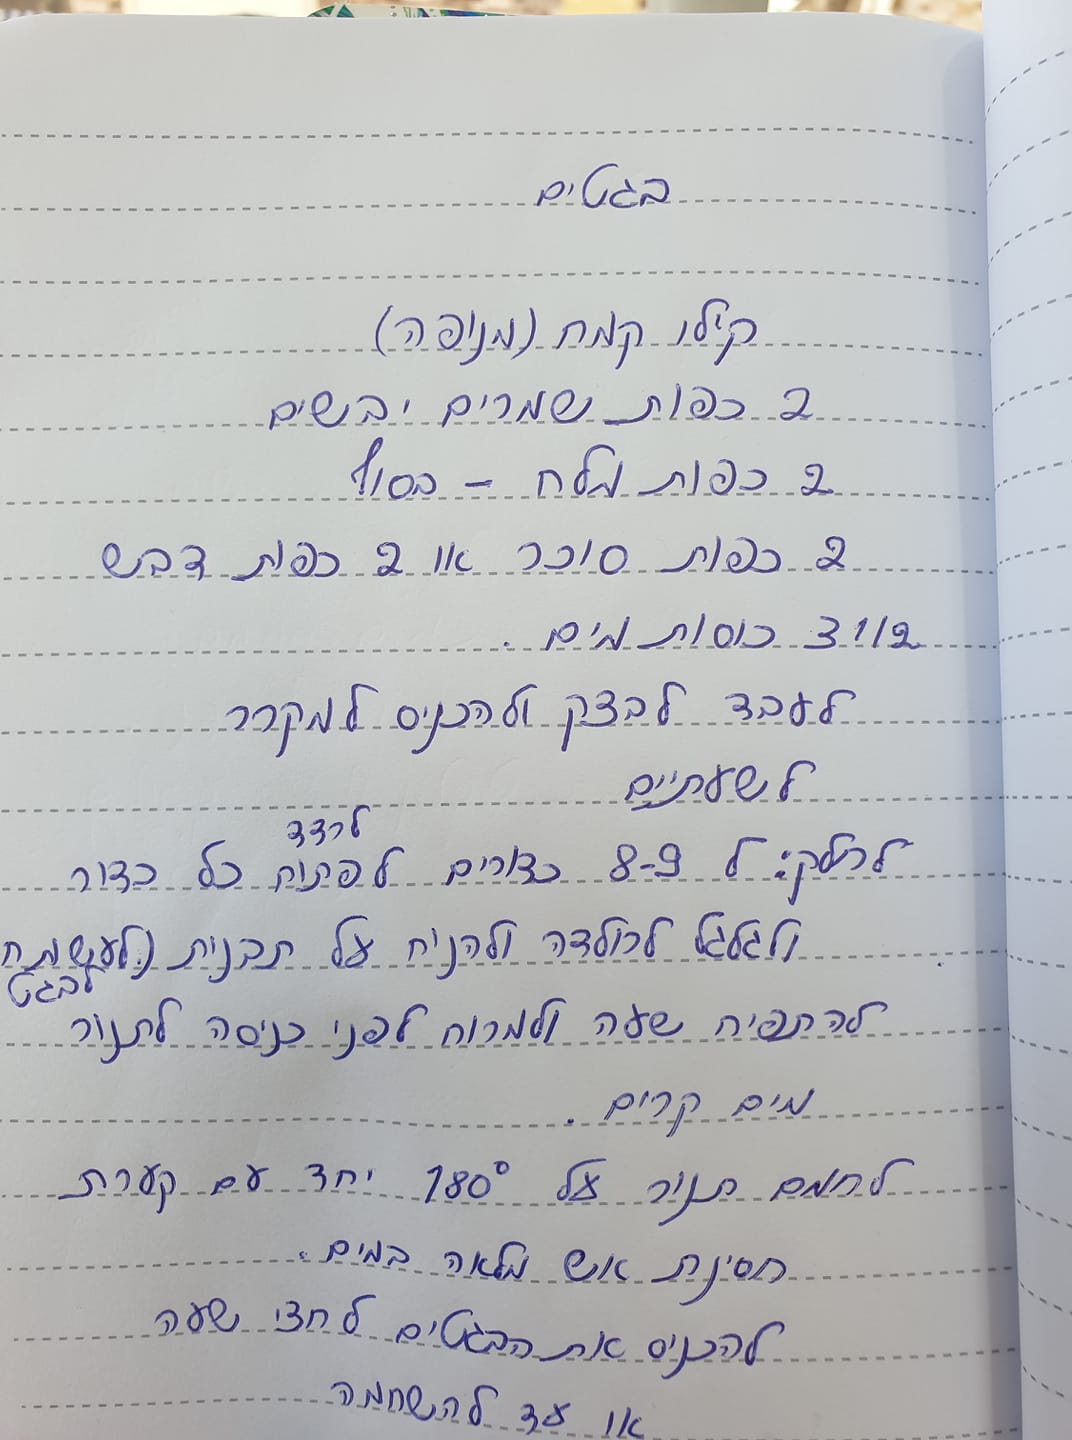 בגטים
קילו קמח (מנופה)
2 כפות שמרים יבשים
2 כפות מלח - בסוף
2 כפות סוכר או 2 כפות דבש
2 ו 3 כוסות מים.
לעבד לבצק ולהכניס למקרר
לשעתיים
לרדד
לחלק: ל 8-9 כדורים לפתוח כל כדור
ולגלגל לרולדה ולהניח על תבנית
לבגט
להתפיח שעה ולמרוח לפני כניסה לתנור
מים קרים.
לחמם תנור על 180° יחד עם קערת
חסינת אש מלאה במים.
להכניס את הבגטים לחצי שעה
או עד להשחמה